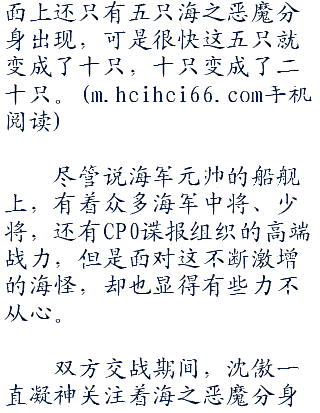 面上还只有五只海之恶魔分
身出现，可是很快这五只就
变成了十只，十只变成了二
十只。(m.hcihci66.com手机
阅读)
尽管说海军元帅的船舰
上，有着众多海军中将、少
将，还有CP0谍报组织的高端
战力，但是面对这不断激增
的海怪，却也显得有些力不
从心。
双方交战期间，沈傲一
直凝神关注着海之恶魔分身